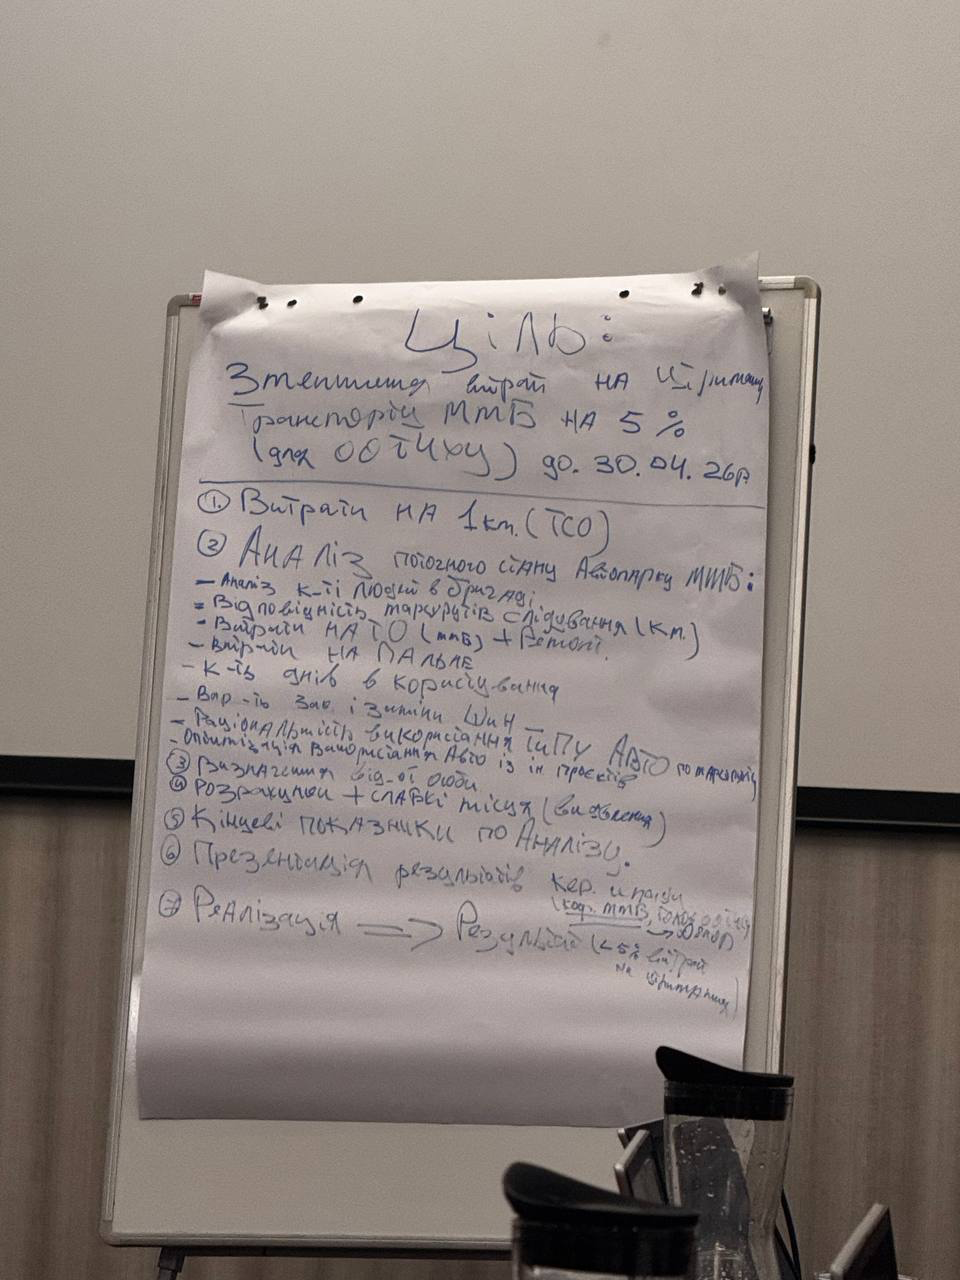 Ціль:
Зменшення витрат на утриман
Транспорту ММБ на 5 %
(для ООТіЧХУ) до. 30.04.26р
1. Витрати на 1 км. (ТСО)
2 Аналіз поточного стану Автопарку ММБ:
- Аналіз к-ті людей в бригаді
= Відповідність маршрутів слідування (км.)
- Витрати на ТО (ммб) + Ремонт.
- Витрати на пальне
- К-ть днів в користування
- Вар-ть зак і заміни шин
- Раціональність використання типу Авто по
- Оптимізація Використання Авто із ін проєктів
3 Визначення від-ої особи
4 Розрахунки + слабкі місця (виявлення)
5 Кінцеві показники по Аналізу.
6 Презентація результатів кер.
(коор. ММБ,
7 Реалізація => Результат (< 5% витрат
на утримання)